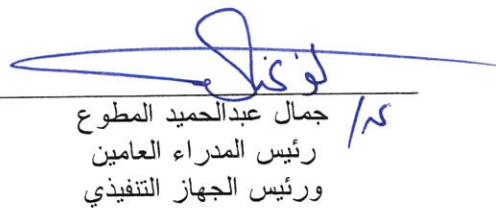 ع/ جمال عبدالحميد المطوع
رئيس المدراء العامين
ورئيس الجهاز التنفيذي